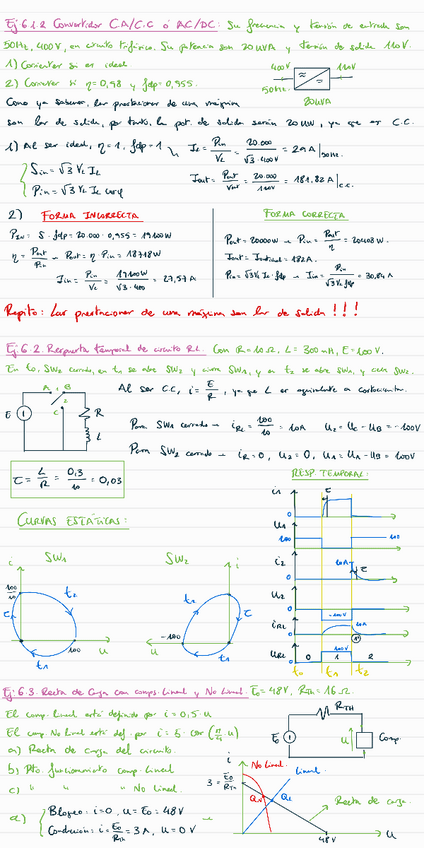 Ej 6.1.2 Convertidor CA/C.C ó AC/DC: Su frecuencia y tensión de entrada son
50Hz, 400V, en circuito trifásico. Su potencia son 20 kVA y tensión de salida 110V.
1) Corrientes si es ideal.
2) Corrientes si η=0,98 y fdp=0,955.
400V 110V
50Hz
20kVA
Como ya sabemos, las prestaciones de una máquina
son las de salida, por tanto, la pot. de salida serán 20 kW, ya que es C.C.
1) Al ser ideal, η=1, fdp=1
IL = Pin/VL = 20.000/√3·400V = 29A | 50Hz.
Sin = √3 VL IL
Pin = √3 VL IL cosφ
Iout = Pout/Vout = 20.000/110V = 181.82A | c.c.
2) FORMA INCORRECTA
PIN = S·fdp = 20.000·0,955 = 19100W
η = Pout/Pin → Pout = η·Pin = 18718W
Iin = Pin/VL = 19100W/√3·400 = 27,57A
FORMA CORRECTA
Pout = 20000W → Pin = Pout/η = 20408W.
Iout = Iout ideal = 182A.
Pin = √3 VL IL·fdp → Iin = Pin/√3 VL fdp = 30,84A
Repito: Las prestaciones de una máquina son las de salida!!!
Ej: 6.2. Respuesta temporal de circuito RL. Con R=10Ω, L=300mH, E=100V.
En t0, SW2 cerrado, en t1 se abre SW2 y cierra SW1, y en t2 se abre SW1 y cierra SW2.
A B
C
E
R
L
Al ser C.C, i = E/R, ya que L es equivalente a cortocircuito.
Para SW1 cerrado → iRL = 100/10 = 10A u2 = uC − uB = −100V
Para SW2 cerrado → iRL = 0, u2 = 0, u1 = uA − uB = 100V
τ = L/R = 0,3/10 = 0,03
RESP TEMPORAL:
CURVAS ESTÁTICAS:
i SW1
100/10
t2
τ
100 u
t1
SW2 i
t2
τ
−100
u
t1
i1
τ
0
u1
100
0
100
i2
10A
τ
0
u2
0
−100V
iRL
10A
0
uRL
100V
0 1 2
t0 t1 t2
Ej: 6.3. Recta de Carga con comps. Lineal y No Lineal. E0=48V, RTH=16Ω.
El comp. Lineal está definido por i=0,5·u
a) Recta de carga del circuito.
b) Pto. funcionamiento comp. Lineal
c) " " " No Lineal.
RTH
E0
u
Comp.
i
No Lineal.
Lineal
3 = E0/RTH
Recta de carga.
48V
u
a) Bloqueo: i=0, u=E0=48V
Conducción: i = E0/RTH = 3A, u=0V